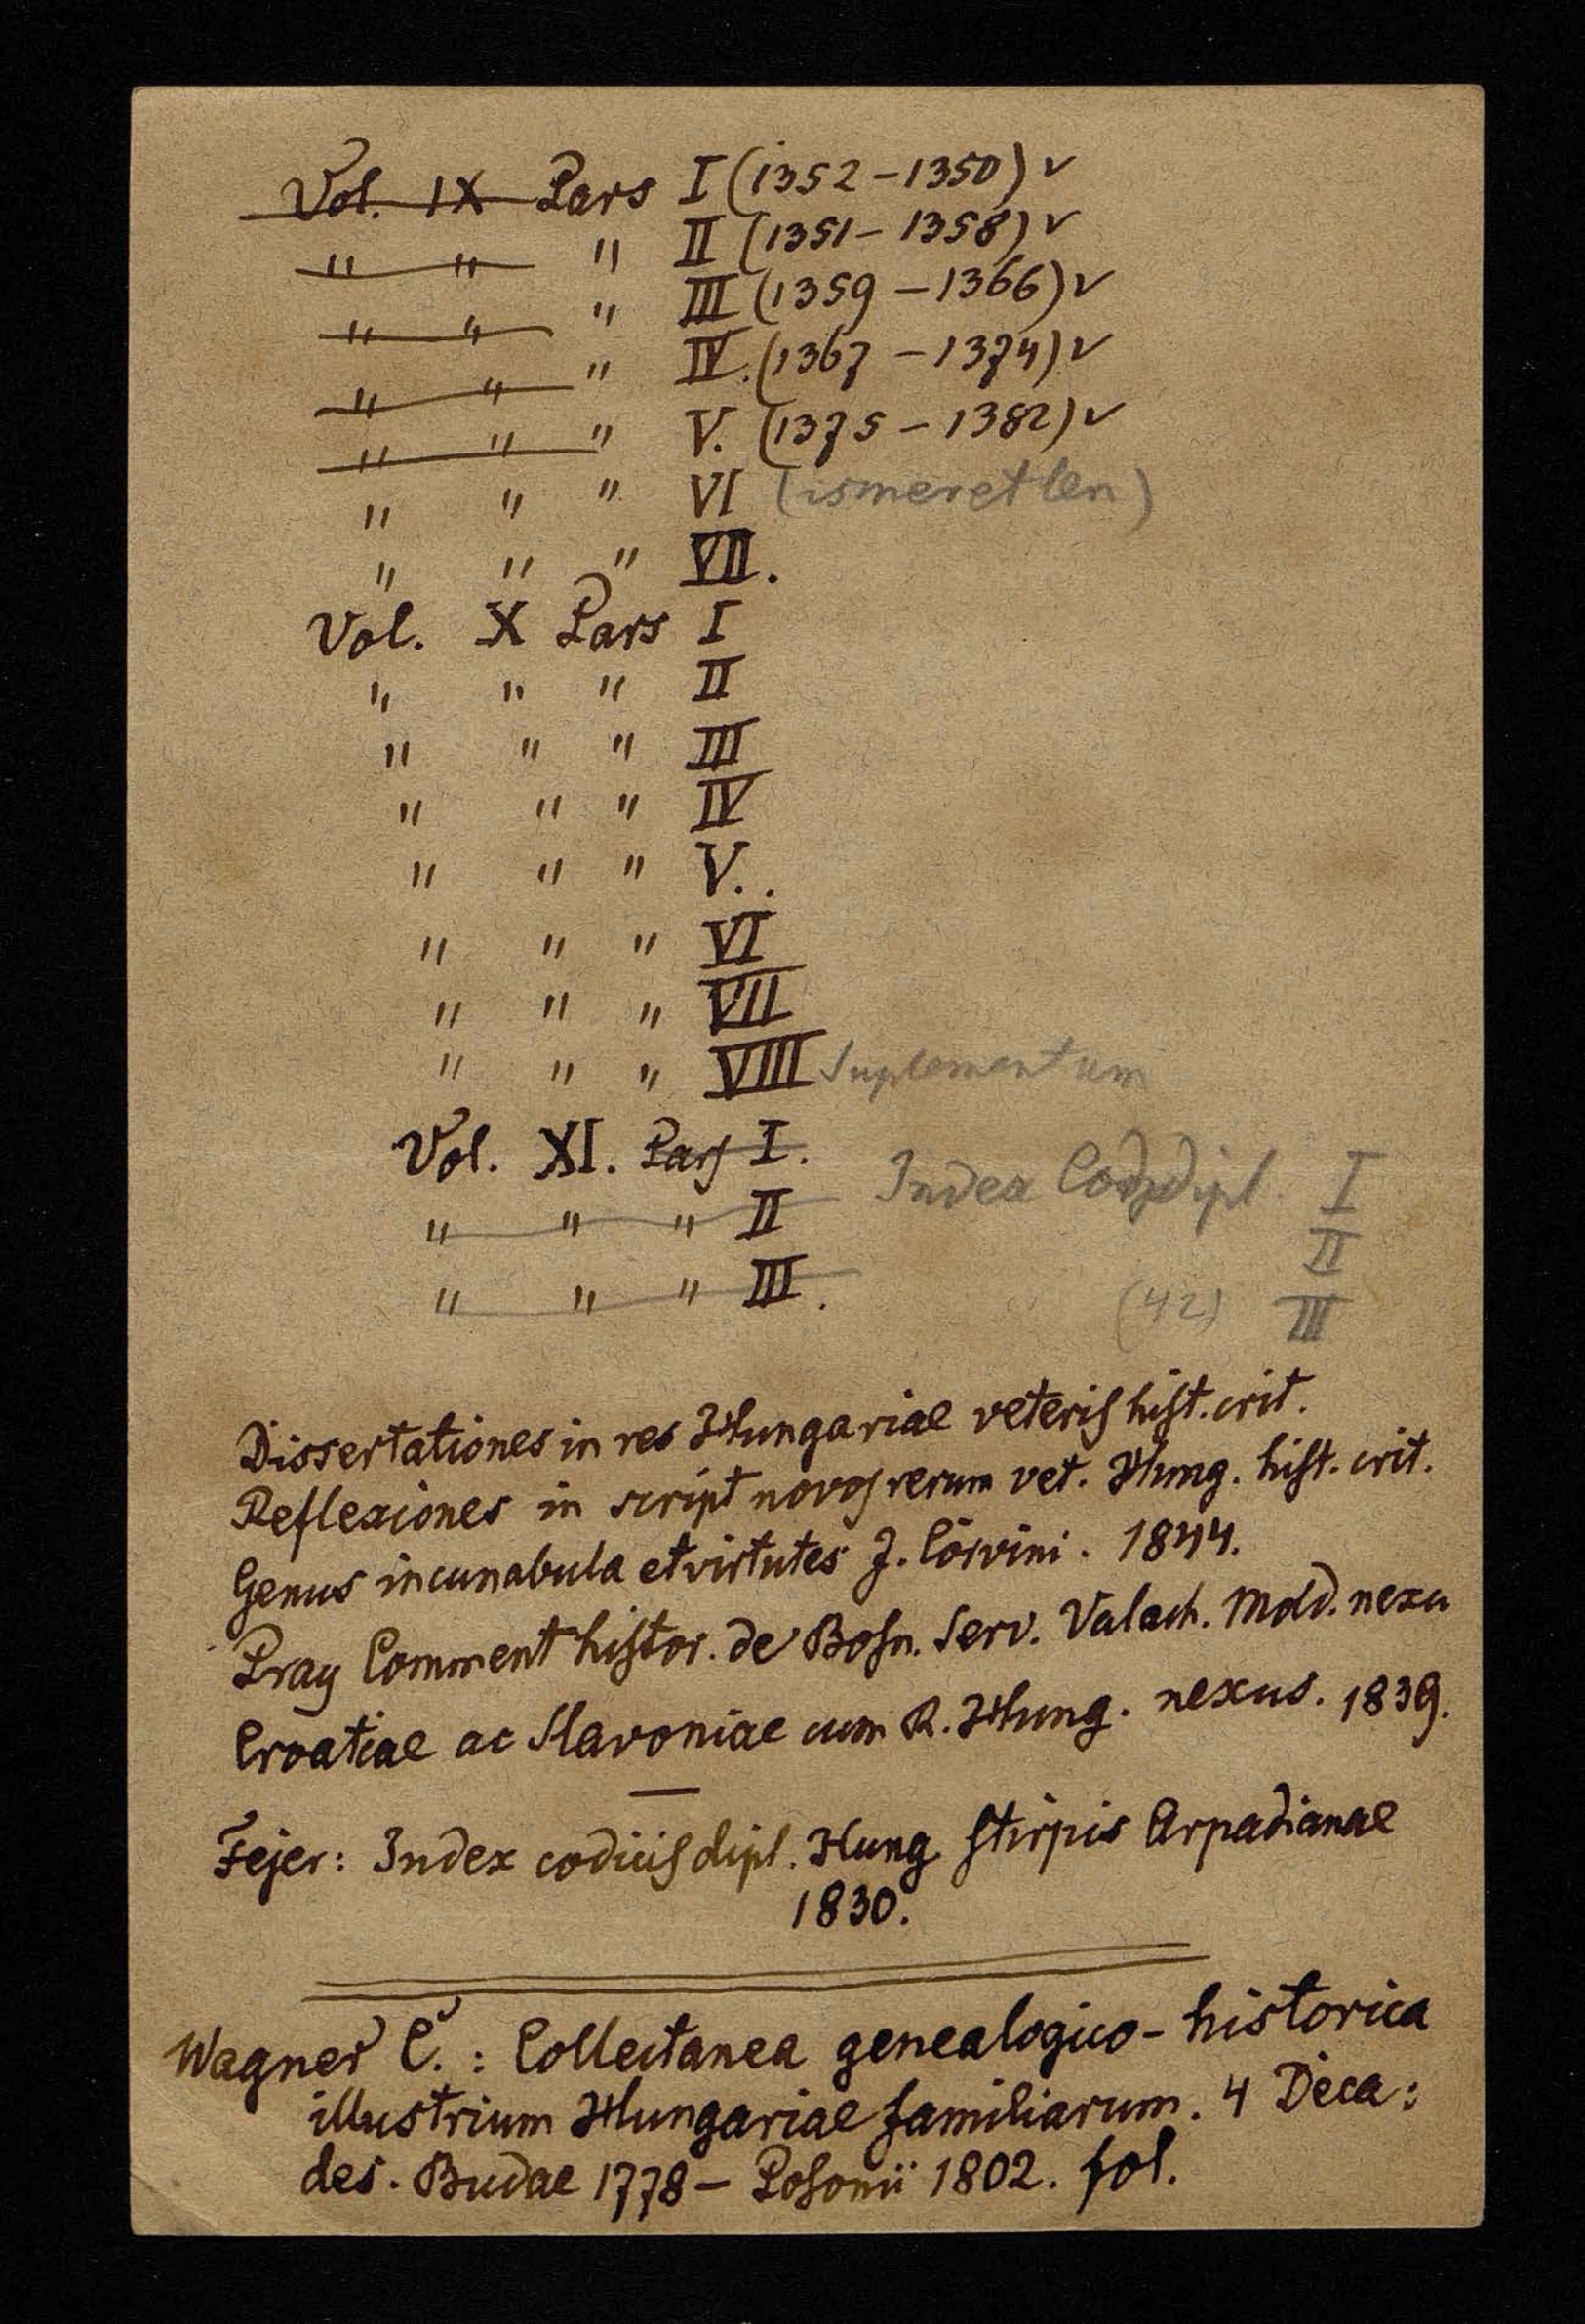 Vol. IX Pars I (1352-1350) ✓
" " " II (1351-1358) ✓
" " " III (1359-1366) ✓
" " " IV. (1367-1374) ✓
" " " V. (1375-1382) ✓
" " " VI (ismeretlen)
" " " VII.
Vol. X Pars I
" " " II
" " " III
" " " IV
" " " V..
" " " VI
" " " VII
" " " VIII Suplementum
Vol. XI. Pars I. Index Cod dipl. I
" " " II II
" " " III. (42) III
Dissertationes in res Hungariae veteris hist. crit.
Reflexiones in script novos rerum vet. Hung. hist. crit.
Genus incunabula et virtutes J. Corvini. 1844.
Pray Comment histor. de Bosn. Serv. Valach. Mold. nexu
Croatiae ac Slavoniae cum R. Hung. nexus. 1839.
Fejer: Index codicis dipl. Hung. stirpis Arpadianae
1830.
Wagner C.: Collectanea genealogico-historica
illustrium Hungariae familiarum. 4 Deca:
des. Budae 1778- Posonii 1802. fol.